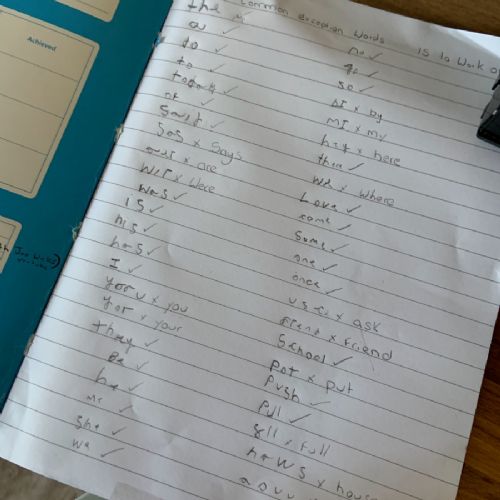 Achieved
Common exception words 15 to work o
the ✓
a ✓
do ✓
to ✓
today ✓
of ✓
said ✓
sas x says
x are
wer x were
was ✓
is ✓
his ✓
has ✓
I ✓
yoru x you
yor x your
they ✓
be ✓
he ✓
me ✓
she ✓
we ✓
no ✓
go ✓
so ✓
bI x by
mI x my
x here
there ✓
x where
Love ✓
come ✓
some ✓
one ✓
once ✓
x ask
x friend
School ✓
pot x put
push ✓
pull ✓
x full
hows x house